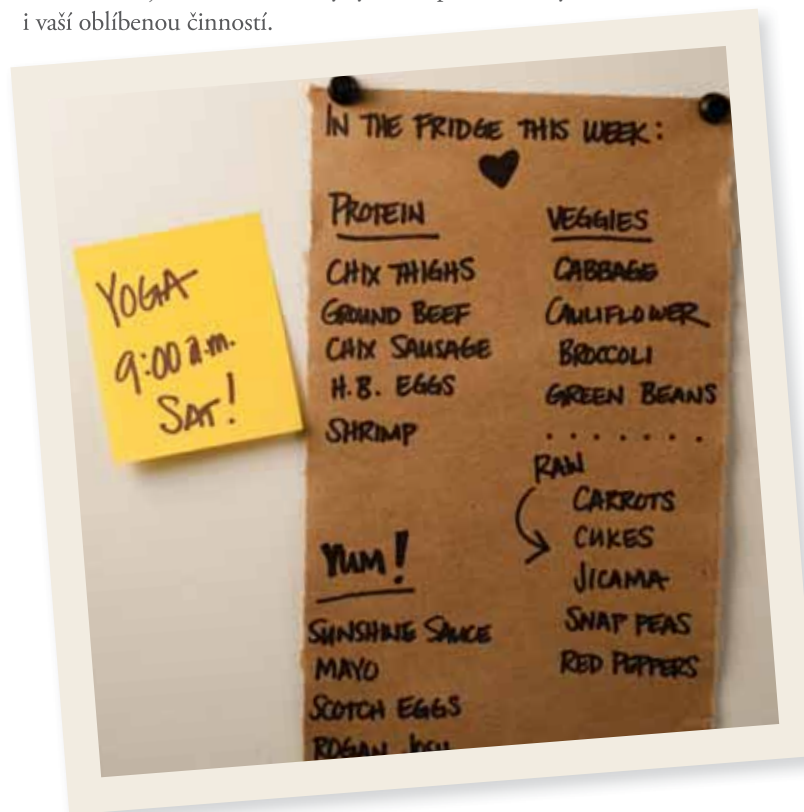 i vaší oblíbenou činností.
YOGA
9:00 a.m.
SAT!
IN THE FRIDGE THIS WEEK:
PROTEIN
CHIX THIGHS
GROUND BEEF
CHIX SAUSAGE
H.B. EGGS
SHRIMP
YUM!
SUNSHINE SAUCE
MAYO
SCOTCH EGGS
ROGAN JOSH
VEGGIES
CABBAGE
CAULIFLOWER
BROCCOLI
GREEN BEANS
.......
RAW
CARROTS
CUKES
JICAMA
SNAP PEAS
RED PEPPERS